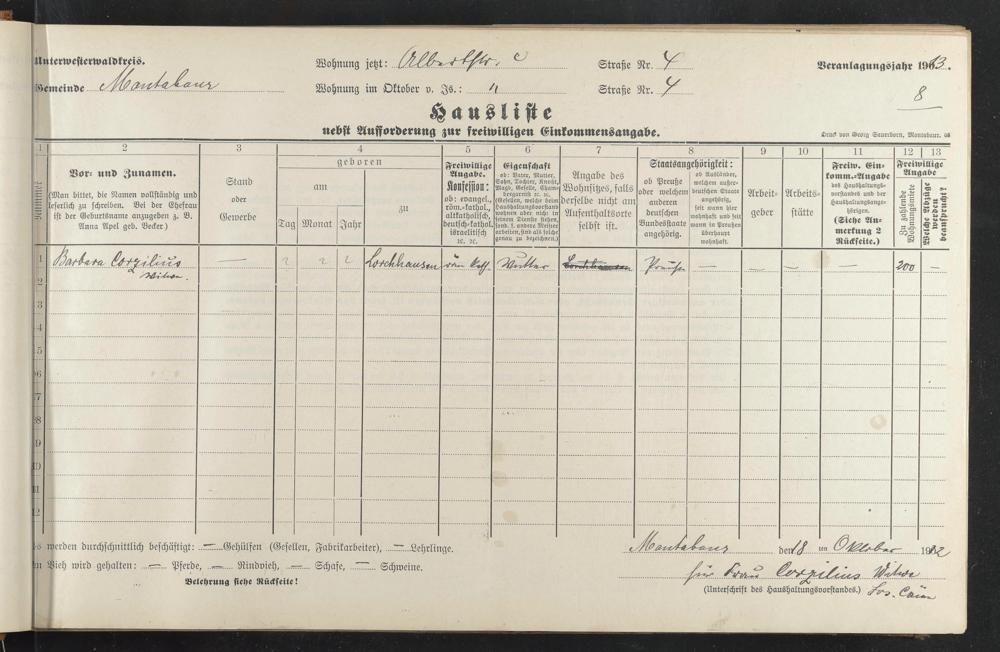 Unterwesterwaldkreis.
Wohnung jetzt: Albertstr. c Straße Nr. 4
Veranlagungsjahr 1913.
Gemeinde Montabaur
Wohnung im Oktober v. Js.: " Straße Nr. 4
8
Hausliste
nebst Aufforderung zur freiwilligen Einkommensangabe.
Druck von Georg Sauerborn, Montabaur.
1 2 3 4 5 6 7 8 9 10 11 12 13
Nummer
Vor- und Zunamen.
(Man bittet, die Namen vollständig und
leserlich zu schreiben. Bei der Ehefrau
ist der Geburtsname anzugeben z. B.
Anna Apel geb. Becker.)
Stand
oder
Gewerbe
geboren
am
Tag Monat Jahr
zu
Freiwillige
Angabe.
Konfession:
ob: evangel.,
röm.-kathol.,
altkatholisch,
deutsch-kathol.
israelitisch
ꝛc. ꝛc.
Eigenschaft
ob: Vater, Mutter,
Sohn, Tochter, Knecht,
Magd, Geselle, Cham-
bregarnist ꝛc. ꝛc.
(Gesellen, welche beim
Haushaltungsvorstand
wohnen aber nicht in
seinem Dienste stehen,
sond. f. andere Meister
arbeiten, sind als solche
genau zu bezeichnen.)
Angabe des
Wohnsitzes, falls
derselbe nicht am
Aufenthaltsorte
selbst ist.
Staatsangehörigkeit:
ob Preuße
oder welchem
anderen
deutschen
Bundesstaate
angehörig.
ob Ausländer,
welchem außer-
deutschen Staate
angehörig,
seit wann hier
wohnhaft und seit
wann in Preußen
überhaupt
wohnhaft.
Arbeit-
geber
Arbeits-
stätte
Freiw. Ein-
komm.-Angabe
des Haushaltungs-
vorstandes und der
Haushaltungsange-
hörigen.
(Siehe An-
merkung 2
Rückseite.)
Freiwillige
Angabe
Zu zahlende
Wohnungsmiete
Welche Abzüge
werden
beansprucht?
1 Barbara Corzilius — ? ? ? Lorchhausen röm. kath. Mutter Lorchhausen Preuße — — — 200 —
Witwe.
2
3
4
5
6
7
8
9
10
11
12
Es werden durchschnittlich beschäftigt: — Gehülfen (Gesellen, Fabrikarbeiter), — Lehrlinge.
An Vieh wird gehalten: — Pferde, — Rindvieh, — Schafe, — Schweine.
Belehrung siehe Rückseite!
Montabaur den 18 ten Oktober 1912
für Frau Corzilius Witwe
(Unterschrift des Haushaltungsvorstandes.)